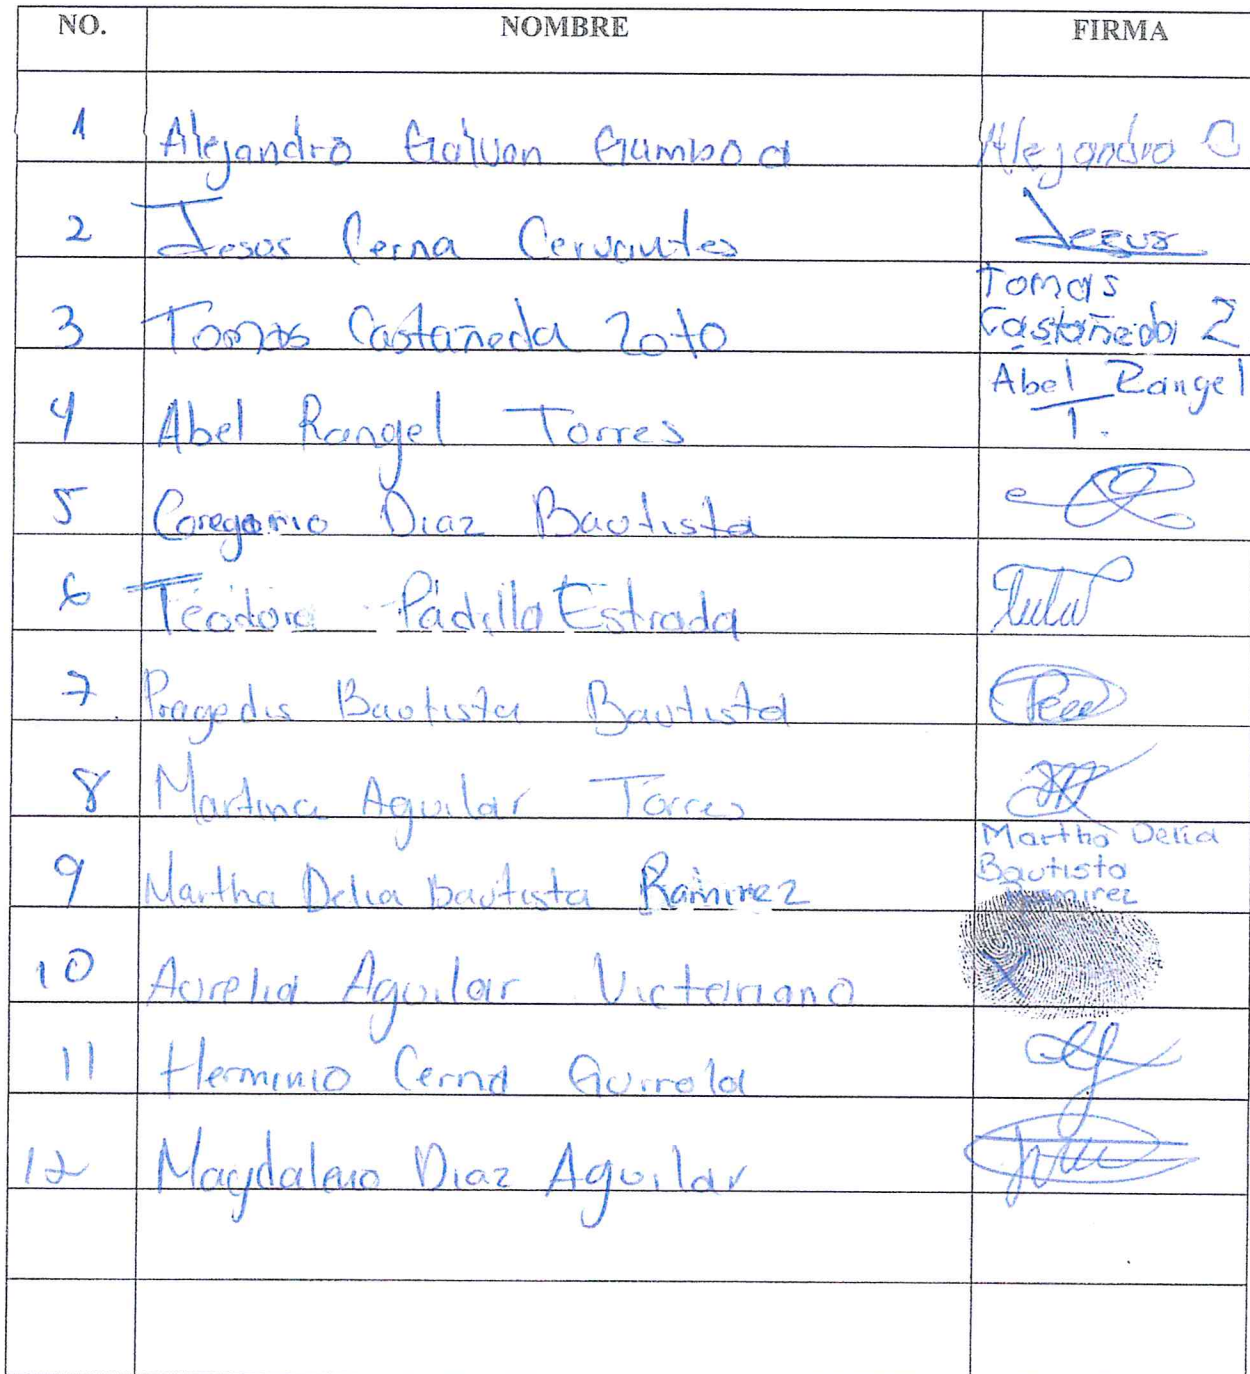 NO. NOMBRE FIRMA
1 Alejandro Galvan Gamboa Alejandro G
2 Jesus Cerna Cervantes Jesus
3 Tomas Castañeda Zoto Tomas
Castañeda Z
4 Abel Rangel Torres Abel Rangel
T.
5 Goregorio Diaz Bautista
6 Teodora Padilla Estrada
7 Pragedis Bautista Bautista
8 Martina Aguilar Torres
9 Martha Delia Bautista Ramirez Martha Delia
Bautista
Ramirez
10 Aurelia Aguilar Victoriano X
11 Herminio Cerna Gurrola
12 Magdaleno Diaz Aguilar